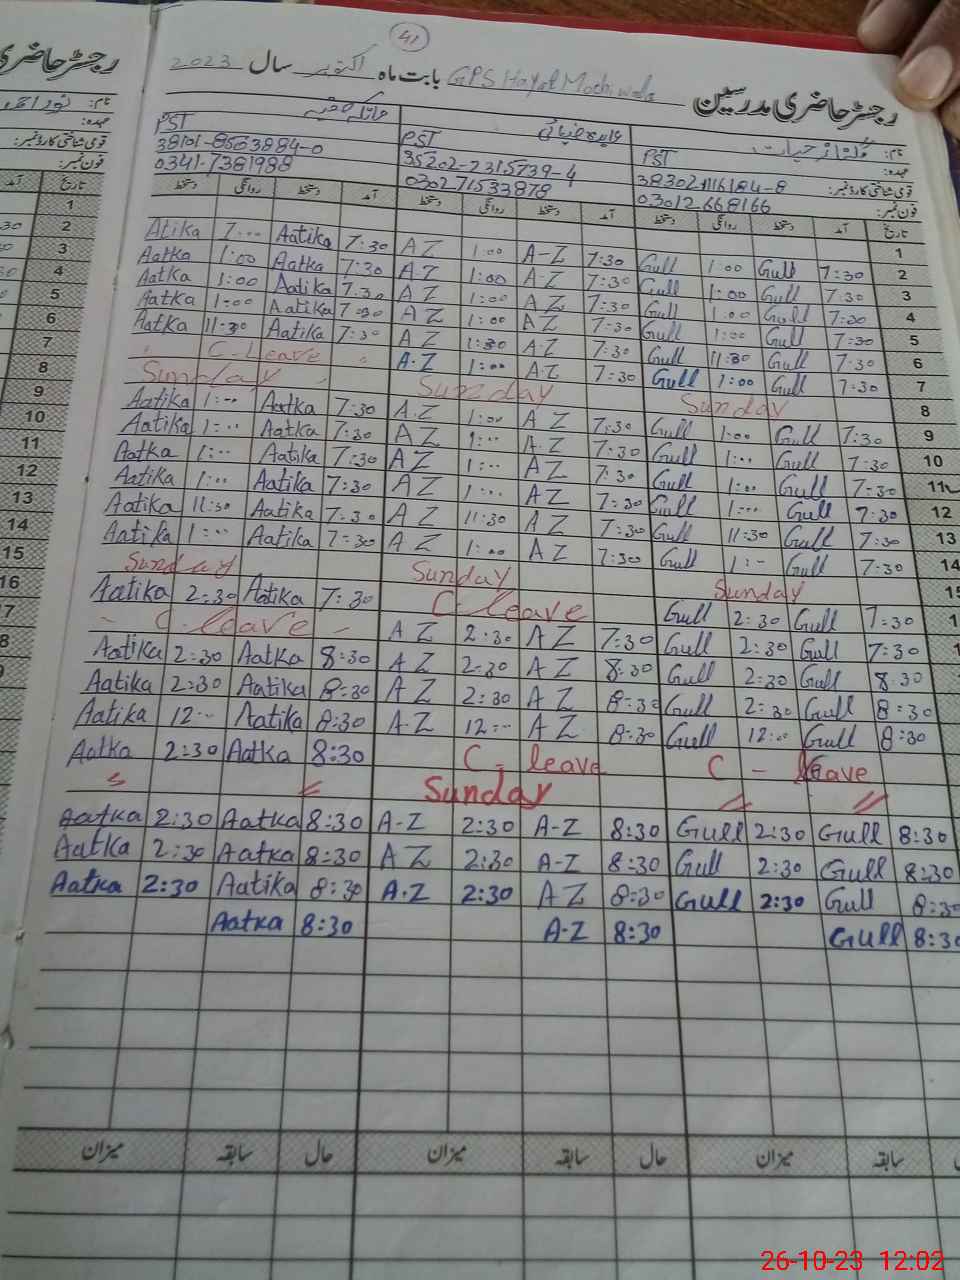 41
رجسٹر حاضری مدرسین GPS Hayat Mochiwala بابت ماہ اکتوبر سال 2023
نام:
عہدہ: PST PST PST
قومی شناختی کارڈ نمبر: 38302-1116184-8 35202-2315739-4 38101-8563884-0
فون نمبر: 03012668166 0302 71533878 0341-7381988
تاریخ آمد دستخط روانگی دستخط آمد دستخط روانگی دستخط آمد دستخط روانگی دستخط
1
2 Atika 7:00 Aatika 7:30 AZ 1:00 A-Z 7:30 Gull 1:00 Gull 7:30
3 Aatka 1:00 Aatka 7:30 A.Z 1:00 A-Z 7:30 Gull 1:00 Gull 7:30
4 Aatka 1:00 Aatika 7:30 AZ 1:00 AZ 7:30 Gull 1:00 Gull 7:30
5 Aatka 1:00 Aatika 7:30 AZ 1:00 AZ 7:30 Gull 1:00 Gull 7:30
6 Aatka 11:30 Aatika 7:30 AZ 1:30 A-Z 7:30 Gull 11:30 Gull 7:30
7 C-Leave A.Z 1:00 A.Z 7:30 Gull 1:00 Gull 7:30
8 Sunday Sunday Sunday
9 Aatika 1:00 Aatka 7:30 A.Z 1:00 AZ 7:30 Gull 1:00 Gull 7:30
10 Aatika 1:00 Aatka 7:30 AZ 1:00 A.Z 7:30 Gull 1:00 Gull 7:30
11 Aatka 1:00 Aatka 7:30 AZ 1:00 AZ 7:30 Gull 1:00 Gull 7:30
12 Aatika 1:00 Aatika 7:30 AZ 1:00 AZ 7:30 Gull 1:00 Gull 7:30
13 Aatika 11:30 Aatika 7:30 AZ 11:30 AZ 7:30 Gull 11:30 Gull 7:30
14 Aatika 1:00 Aatika 7:30 AZ 1:00 AZ 7:30 Gull 1:- Gull 7:30
15 Sunday Sunday Sunday
Aatika 2:30 Aatika 7:30 C-leave Gull 2:30 Gull 7:30
- C-leave - AZ 2:30 AZ 7:30 Gull 2:30 Gull 7:30
Aatika 2:30 Aatka 8:30 AZ 2:30 AZ 8:30 Gull 2:30 Gull 8:30
Aatika 2:30 Aatika 8:30 AZ 2:30 AZ 8:30 Gull 2:30 Gull 8:30
Aatika 12:00 Aatika 8:30 A-Z 12:00 AZ 8:30 Gull 12:00 Gull 8:30
Aatka 2:30 Aatka 8:30 C - leave C - leave
Sunday
Aatka 2:30 Aatka 8:30 A-Z 2:30 A-Z 8:30 Gull 2:30 Gull 8:30
Aatka 2:30 Aatka 8:30 AZ 2:30 A-Z 8:30 Gull 2:30 Gull 8:30
Aatka 2:30 Aatika 8:30 A.Z 2:30 AZ 8:30 Gull 2:30 Gull 8:30
Aatka 8:30 A-Z 8:30 Gull 8:30
سابقہ میزان حال سابقہ میزان حال سابقہ میزان
26-10-23 12:02